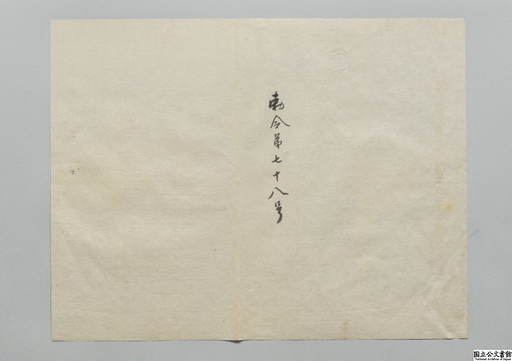 勅令第七十八号
国立公文書館
National Archives of Japan